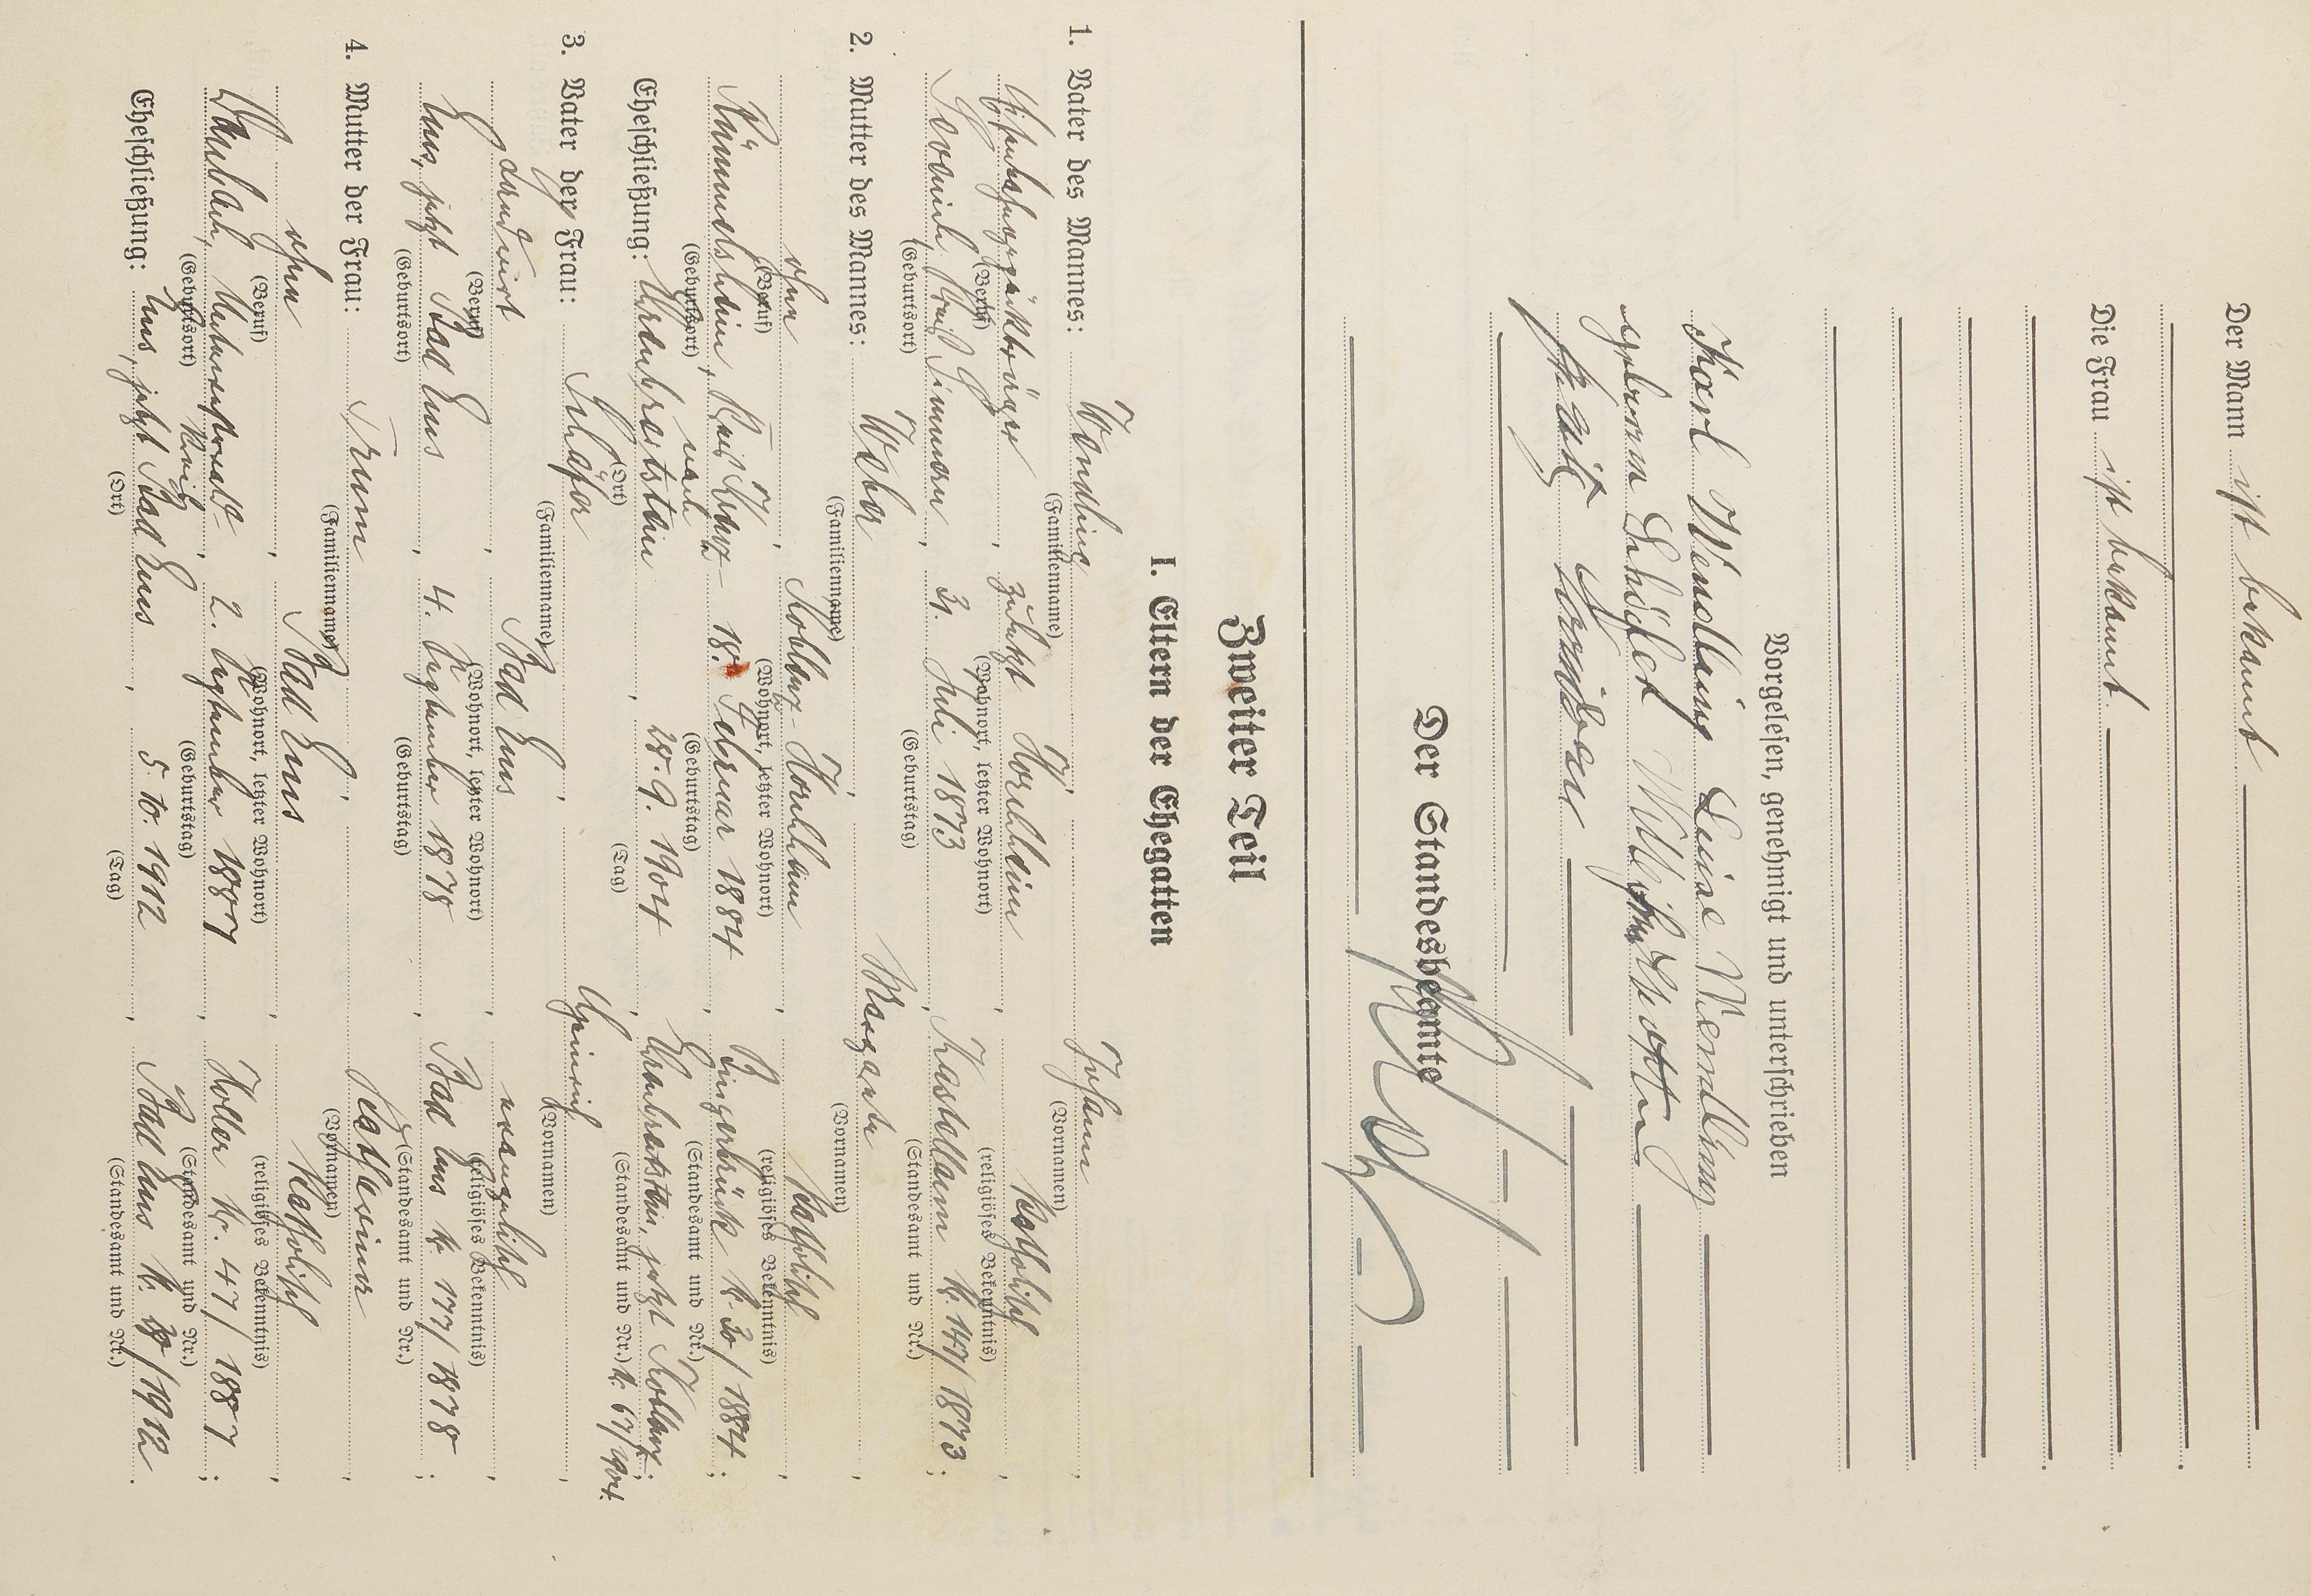 Der Mann ist bekannt
Die Frau ist bekannt.
Vorgelesen, genehmigt und unterschrieben
Karl Wendling Luise Wendling
geborene Schäfer
Der Standesbeamte
Zweiter Teil
I. Eltern der Ehegatten
1. Vater des Mannes: Wendling, Johann,
(Familienname) (Vornamen)
zuletzt Horchheim, katholisch,
(Beruf) (Wohnort, letzter Wohnort) (religiöses Bekenntnis)
Kreis Simmern, 31. Juli 1873, Kastellaun Nr. 147/1873;
(Geburtsort) (Geburtstag) (Standesamt und Nr.)
2. Mutter des Mannes: Weber, Margarete,
(Familienname) (Vornamen)
ohne, Koblenz-Horchheim, katholisch,
(Beruf) (Wohnort, letzter Wohnort) (religiöses Bekenntnis)
Rümmelsheim, Kreis Kreuznach, 18. Februar 1884, Bingerbrück Nr. 30/1884;
(Geburtsort) (Geburtstag) (Standesamt und Nr.)
Eheschließung: Ehrenbreitstein, 28.9.1904, Ehrenbreitstein, jetzt Koblenz; Nr. 67/904.
(Ort) (Tag) (Standesamt und Nr.)
3. Vater der Frau: Schäfer, Heinrich,
(Familienname) (Vornamen)
Landwirt, Bad Ems, evangelisch,
(Beruf) (Wohnort, letzter Wohnort) (religiöses Bekenntnis)
Ems, jetzt Bad Ems, 4. September 1878, Bad Ems Nr. 177/1878;
(Geburtsort) (Geburtstag) (Standesamt und Nr.)
4. Mutter der Frau: Katharina,
(Familienname) (Vornamen)
ohne, Bad Ems, katholisch,
(Beruf) (Wohnort, letzter Wohnort) (religiöses Bekenntnis)
2. September 1887, Nr. 47/1887;
(Geburtsort) (Geburtstag) (Standesamt und Nr.)
Eheschließung: Ems, jetzt Bad Ems, 5.10.1912, Bad Ems Nr. /1912.
(Ort) (Tag) (Standesamt und Nr.)